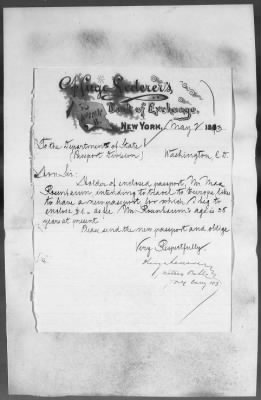 Hugo Lederer's
Bank of Exchange.
NEW YORK, May 2 1893
To the Department of State
(Passport Division) Washington, D.C.
Dear Sir:
Holder of inclosed passport, Mr Max
Rosenheim, intending to travel to Europe likes
to have a new passport for which I beg to
enclose $1.- as fee Mr. Rosenheim's age is 38
years at present.
Please send the new passport and oblige
Very Respectfully